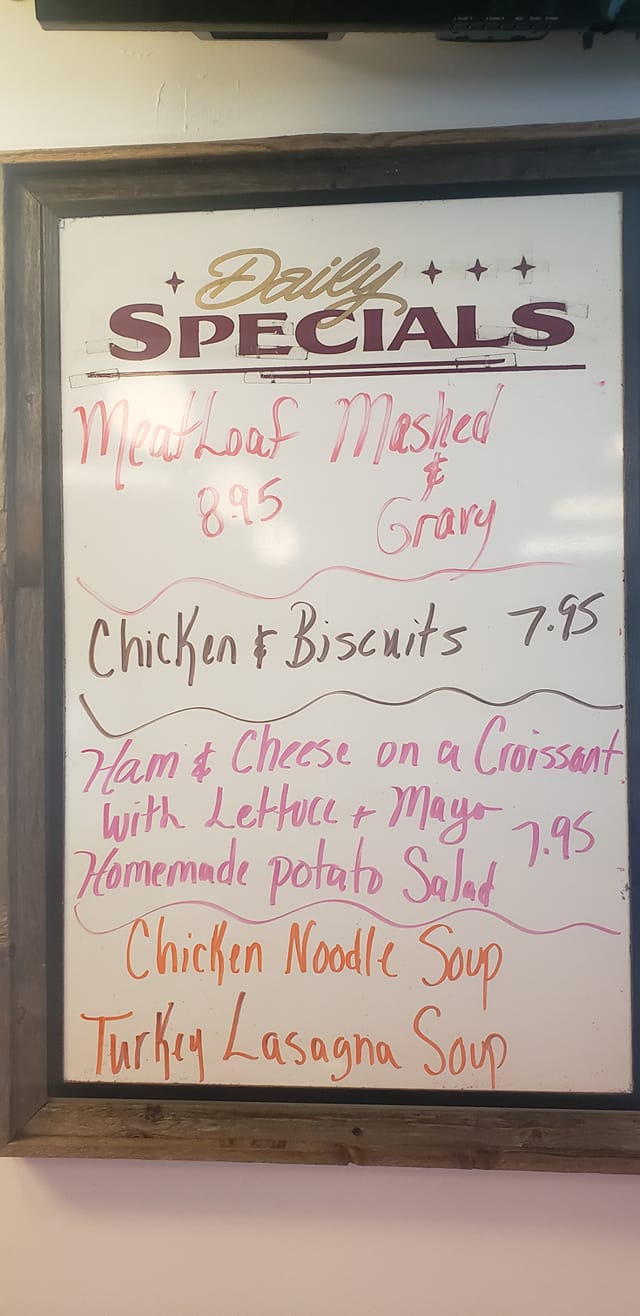 Daily
SPECIALS
MeatLoaf Mashed
&
8.95 Gravy
Chicken & Biscuits 7.95
Ham & Cheese on a Croissant
with Lettuce + Mayo
7.95
Homemade potato Salad
Chicken Noodle Soup
Turkey Lasagna Soup